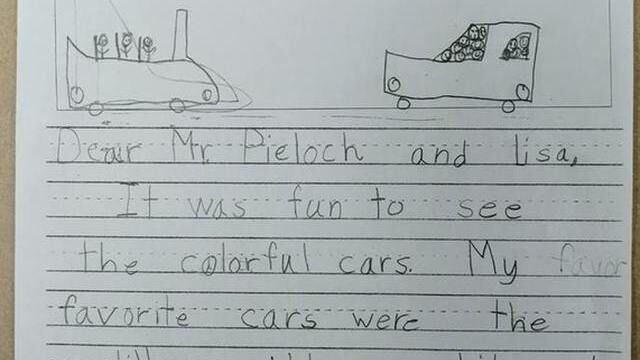 Dear Mr. Pieloch and lisa,
It was fun to see
the colorful cars. My favor
favorite cars were the